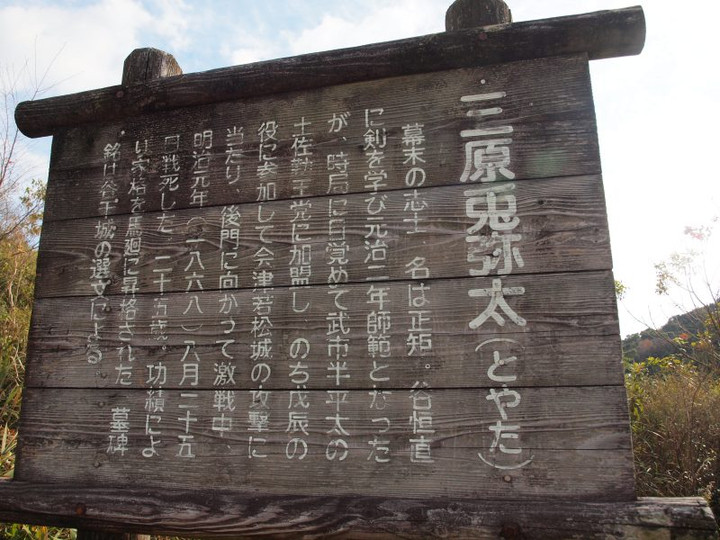 三原兎弥太（とやた）
幕末の志士　名は正知。谷恒直
に剣を学び元治二年師範となった
が、時局に目覚めて武市半平太の
土佐勤王党に加盟し　のち戊辰の
役に参加して会津若松城の攻撃に
当たり、後門に向かって激戦中、
明治元年（一八六八）八月二十五
日戦死した　二十五歳。功績によ
り家格を馬廻に昇格された　墓碑
銘は谷干城の選文による